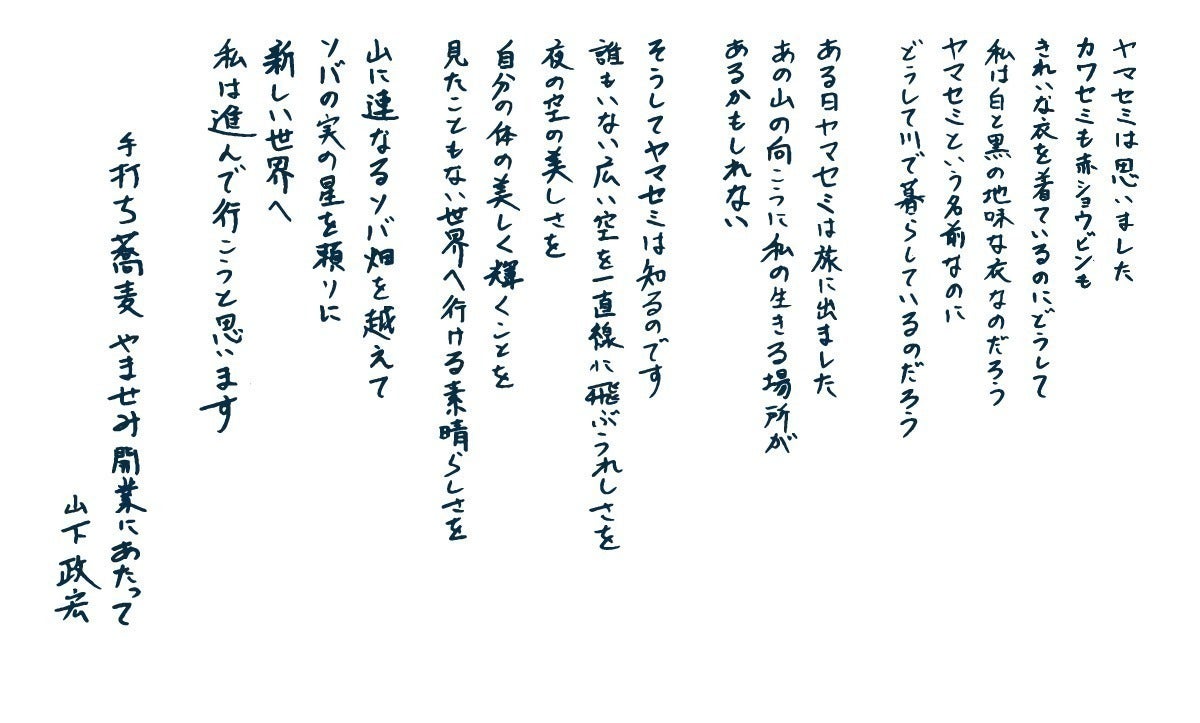 ヤマセミは思いました
カワセミも赤ショウビンも
きれいな衣を着ているのにどうして
私は白と黒の地味な衣なのだろう
ヤマセミという名前なのに
どうして川で暮らしているのだろう
ある日ヤマセミは旅に出ました
あの山の向こうに私の生きる場所が
あるかもしれない
そうしてヤマセミは知るのです
誰もいない広い空を一直線に飛ぶうれしさを
夜の空の美しさを
自分の体の美しく輝くことを
見たこともない世界へ行ける素晴らしさを
山に連なるソバ畑を越えて
ソバの実の星を頼りに
新しい世界へ
私は進んで行こうと思います
手打ち蕎麦 やませみ開業にあたって
山下政宏